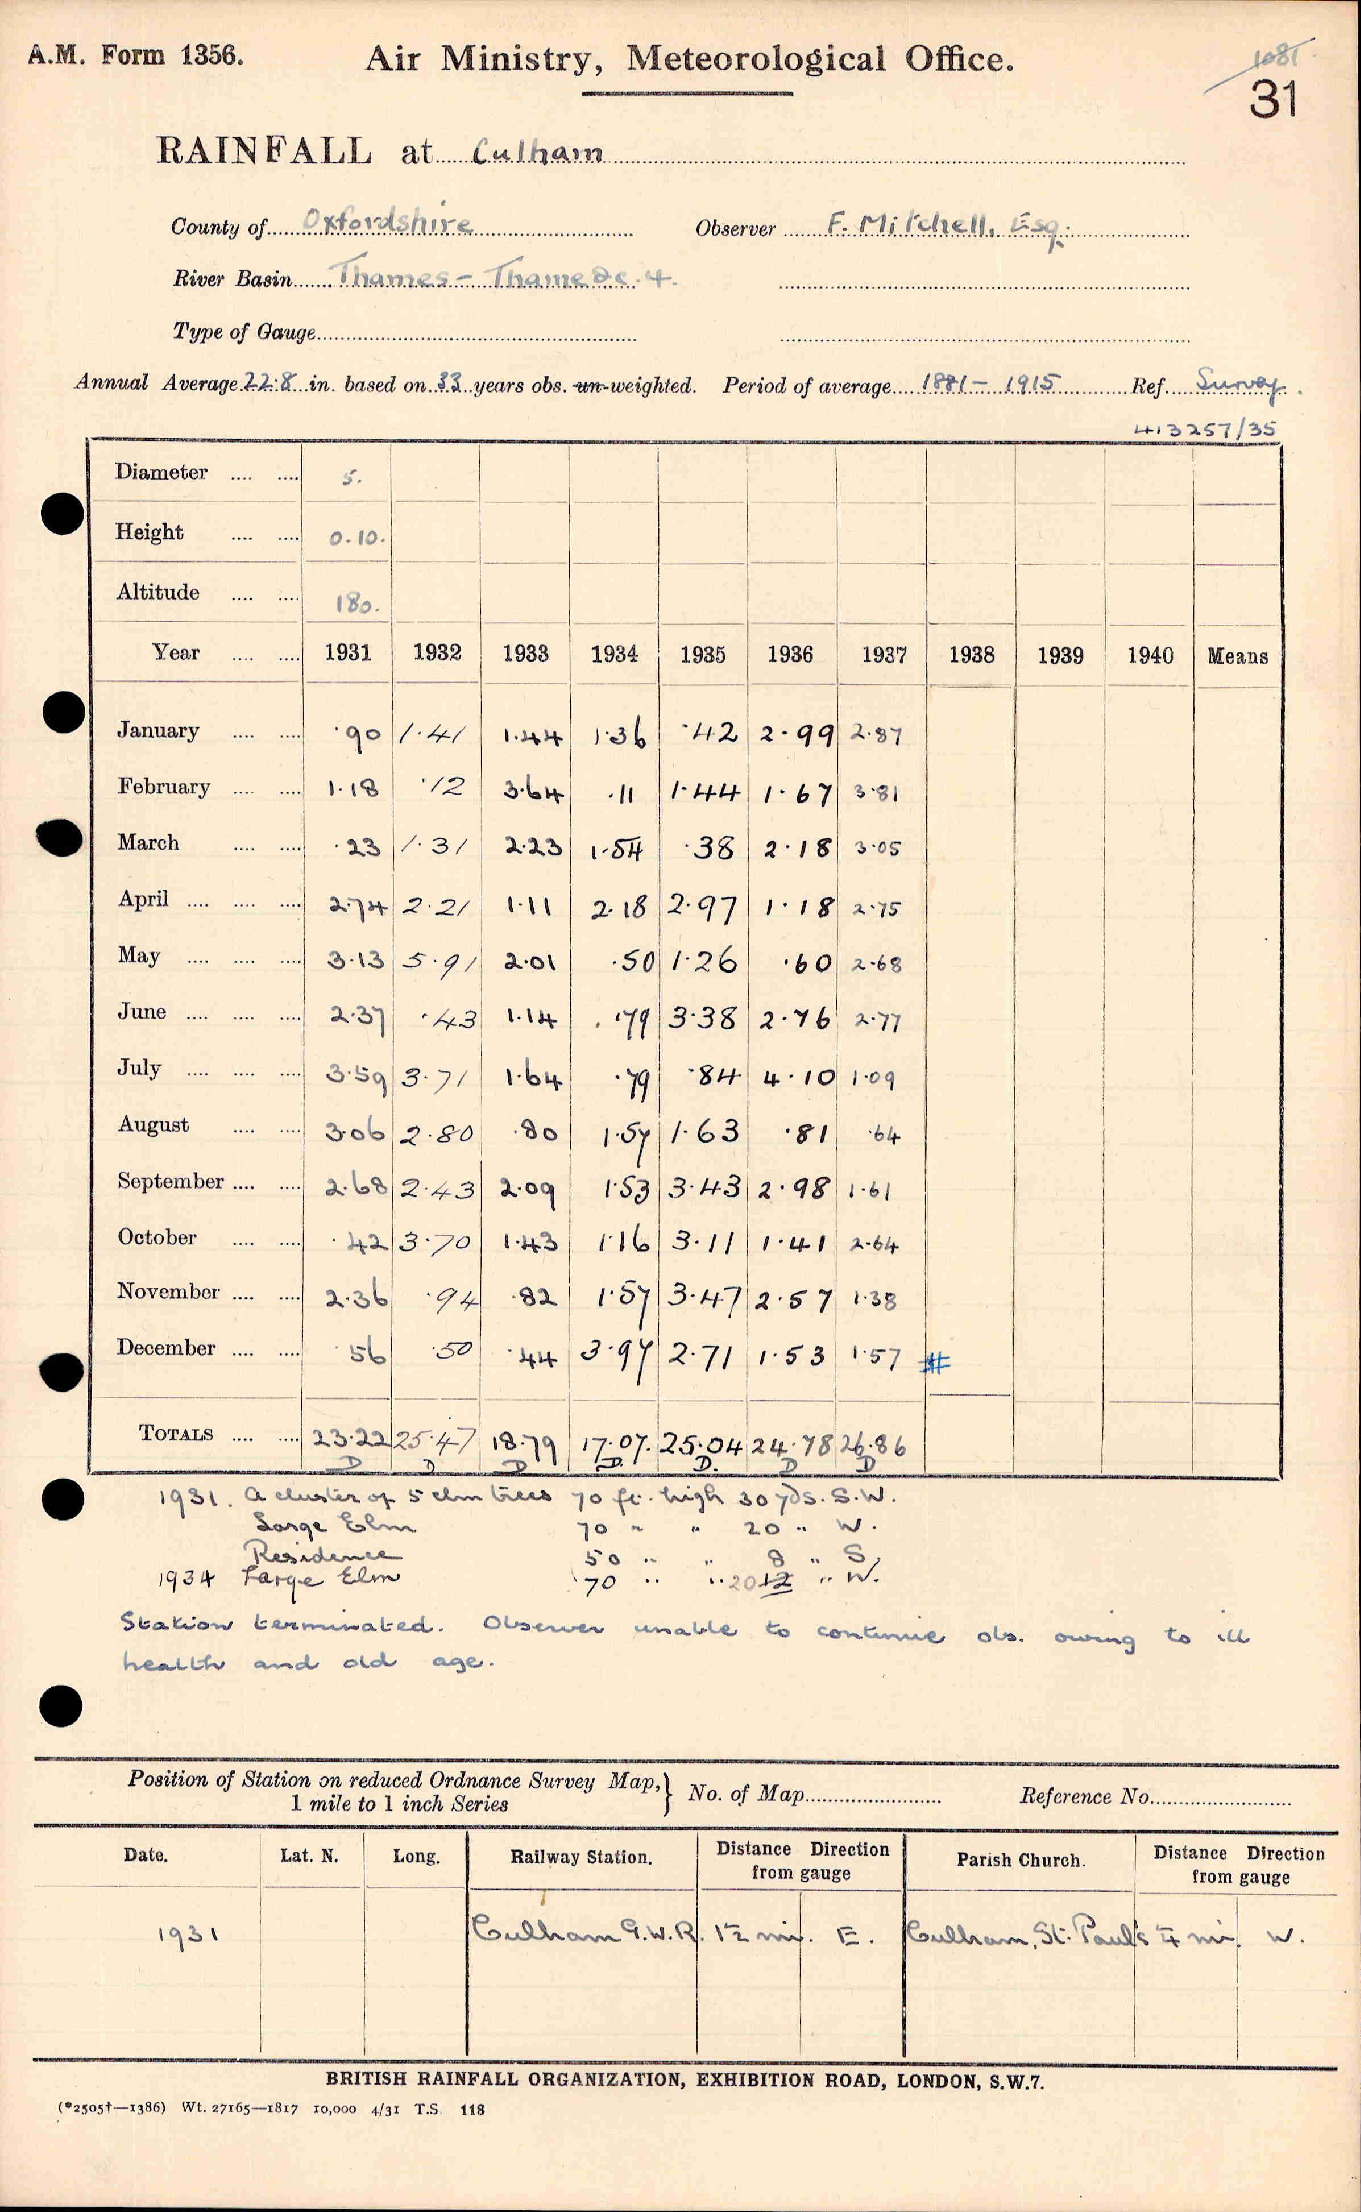 A.M. Form 1356.
Air Ministry, Meteorological Office.
1081
31
RAINFALL at Culham
County of Oxfordshire Observer F. Mitchell, Esq.
River Basin Thames - Thame &c. 4.
Type of Gauge
Annual Average 22.8 in. based on 33 years obs. un-weighted. Period of average 1881 - 1915 Ref. Survey.
413257/35
Diameter .... .... 5.
Height .... .... 0.10.
Altitude .... .... 180.
Year .... .... 1931 1932 1933 1934 1935 1936 1937 1938 1939 1940 Means
January .... .... ·90 1·41 1·44 1·36 ·42 2·99 2·87
February .... .... 1·18 ·12 3·64 ·11 1·44 1·67 3·81
March .... .... ·23 1·31 2·23 1·54 ·38 2·18 3·05
April .... .... .... 2·74 2·21 1·11 2·18 2·97 1·18 2·75
May .... .... .... 3·13 5·91 2·01 ·50 1·26 ·60 2·68
June .... .... .... 2·37 ·43 1·14 ·79 3·38 2·76 2·77
July .... .... .... 3·59 3·71 1·64 ·79 ·84 4·10 1·09
August .... .... 3·06 2·80 ·80 1·57 1·63 ·81 ·64
September .... .... 2·68 2·43 2·09 1·53 3·43 2·98 1·61
October .... .... ·42 3·70 1·43 1·16 3·11 1·41 2·64
November .... .... 2·36 ·94 ·82 1·57 3·47 2·57 1·38
December .... .... ·56 ·50 ·44 3·97 2·71 1·53 1·57 #
TOTALS .... .... 23·22 25·47 18·79 17·07. 25·04 24·78 26·86
D D D D. D. D D
1931. A cluster of 5 elm trees 70 ft. high 30 yds. S.W.
Large Elm 70 " " 20 " W.
Residence 50 " " 8 " S,
1934 Large Elm 70 " " 20 12 " W.
Station terminated. Observer unable to continue obs. owing to ill
health and old age.
Position of Station on reduced Ordnance Survey Map,} No. of Map Reference No.
1 mile to 1 inch Series
Date. Lat. N. Long. Railway Station. Distance Direction from gauge Parish Church. Distance Direction from gauge
1931 Culham G.W.R. 1½ mi. E. Culham, St. Paul's ¼ mi. W.
BRITISH RAINFALL ORGANIZATION, EXHIBITION ROAD, LONDON, S.W.7.
(*2505†—1386) Wt. 27165—1817 10,000 4/31 T.S. 118